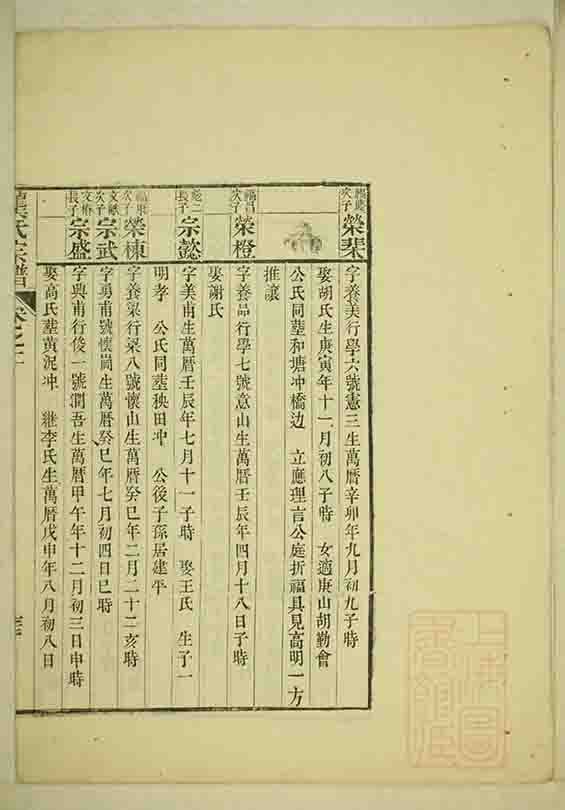 次子 榮棐 字養美行學六號憲三生萬曆辛卯年九月初九子時
娶胡氏生庚寅年十一月初八子時 女適庚山胡勤會
公氏同塟和塘冲橋边 立應理言公庭折福具見高明一方
推讓
福昌次子 榮橙 字養品行學七號意山生萬曆壬辰年四月十八日子時
娶謝氏
長子 宗懿 字美甫生萬曆壬辰年七月十一子時 娶王氏 生子一
明孝 公氏同塟秧田冲 公後子孫居建平
次子 榮棟 字養梁行梁八號懷山生萬曆癸巳年二月二十二亥時
次子 宗武 字勇甫號懷崗生萬曆癸巳年七月初四日巳時
長子 宗盛 字興甫行俊一號潤吾生萬曆甲午年十二月初三日申時
娶高氏塟黄泥冲 継李氏生萬曆戊申年八月初八日
氏宗譜 卷之二
上海圖書館藏